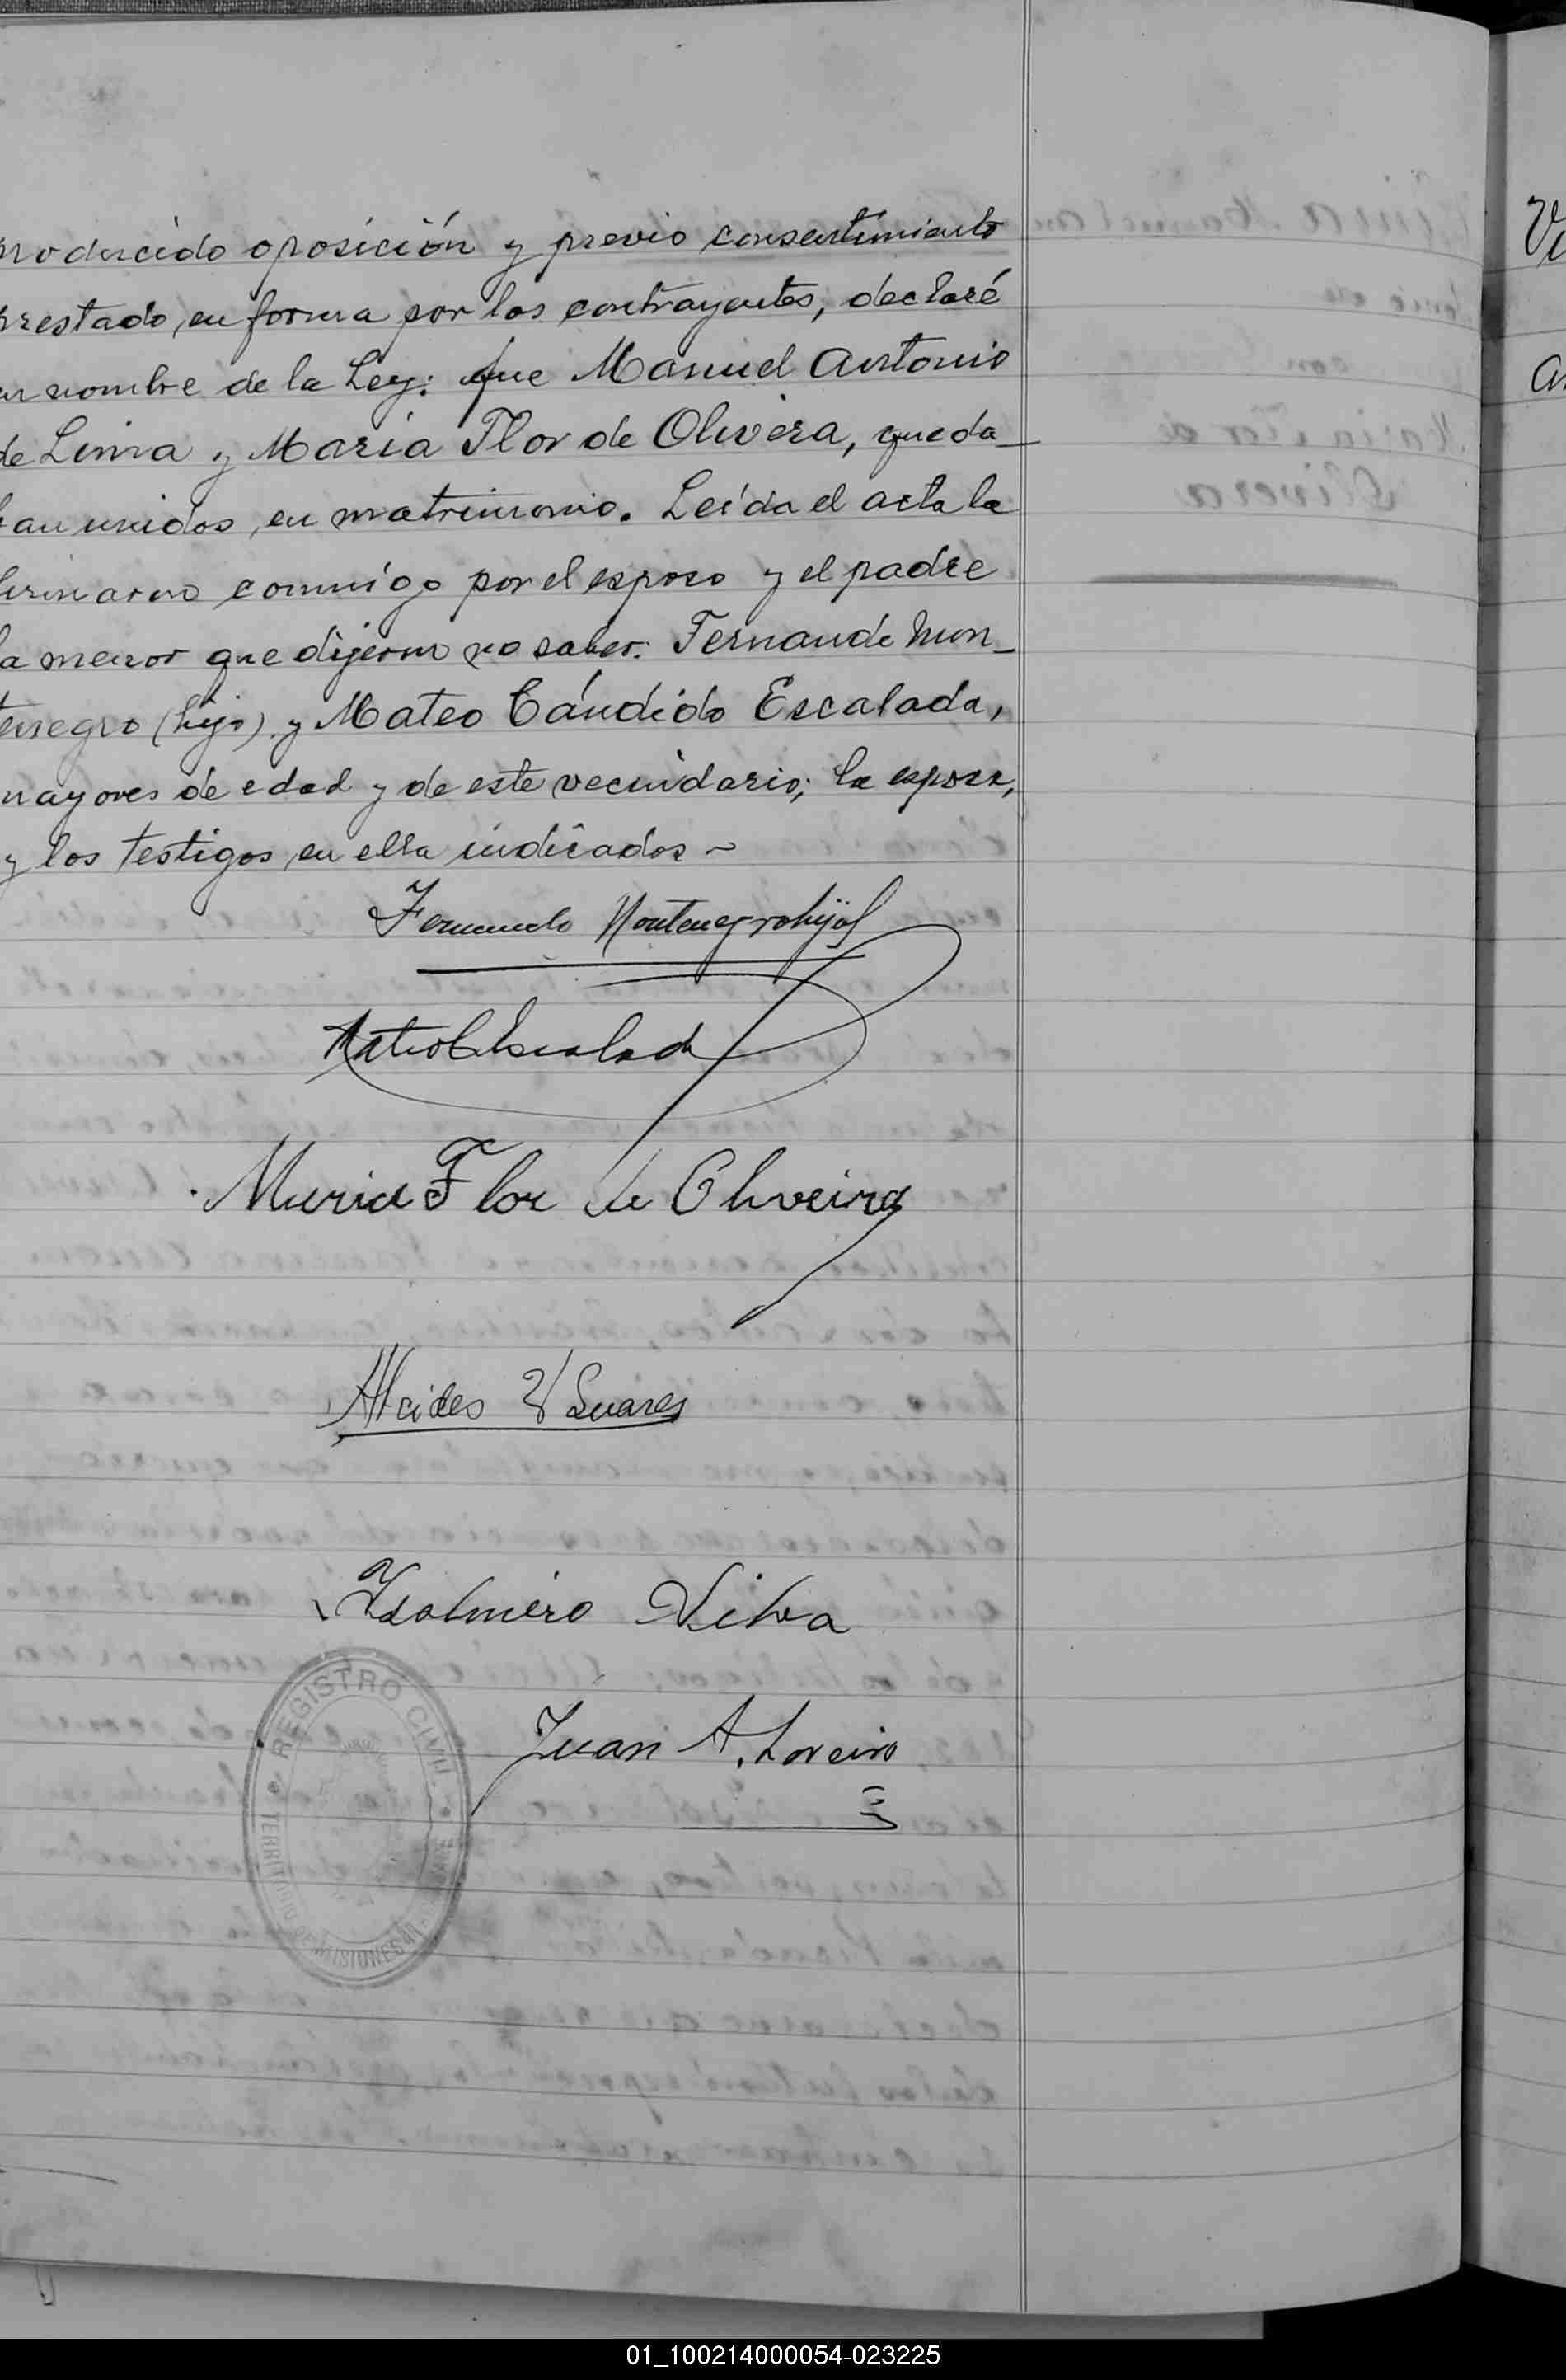 producido oposición y previo consentimiento
prestado, en forma por los contrayentes, declaré
en nombre de la Ley: que Manuel Antonio
de Lima y María Flor de Olivera, queda-
ban unidos, en matrimonio. Leída el acta la
firmaron conmigo por el esposo y el padre
la menor que dijeron no saber: Fernando Mon-
tenegro (hijo) y Mateo Cándido Escalada,
mayores de edad y de este vecindario; la esposa,
y los testigos en ella indicados ~
Fernando Montenegro hijo
Mateo C Escalada
Maria Flor de Oliveira
Alcides Suares
Ydalmiro Silva
Juan A. Loreiro
REGISTRO CIVIL
TERRITORIO DE MISIONES
Vi
An
01_100214000054-023225